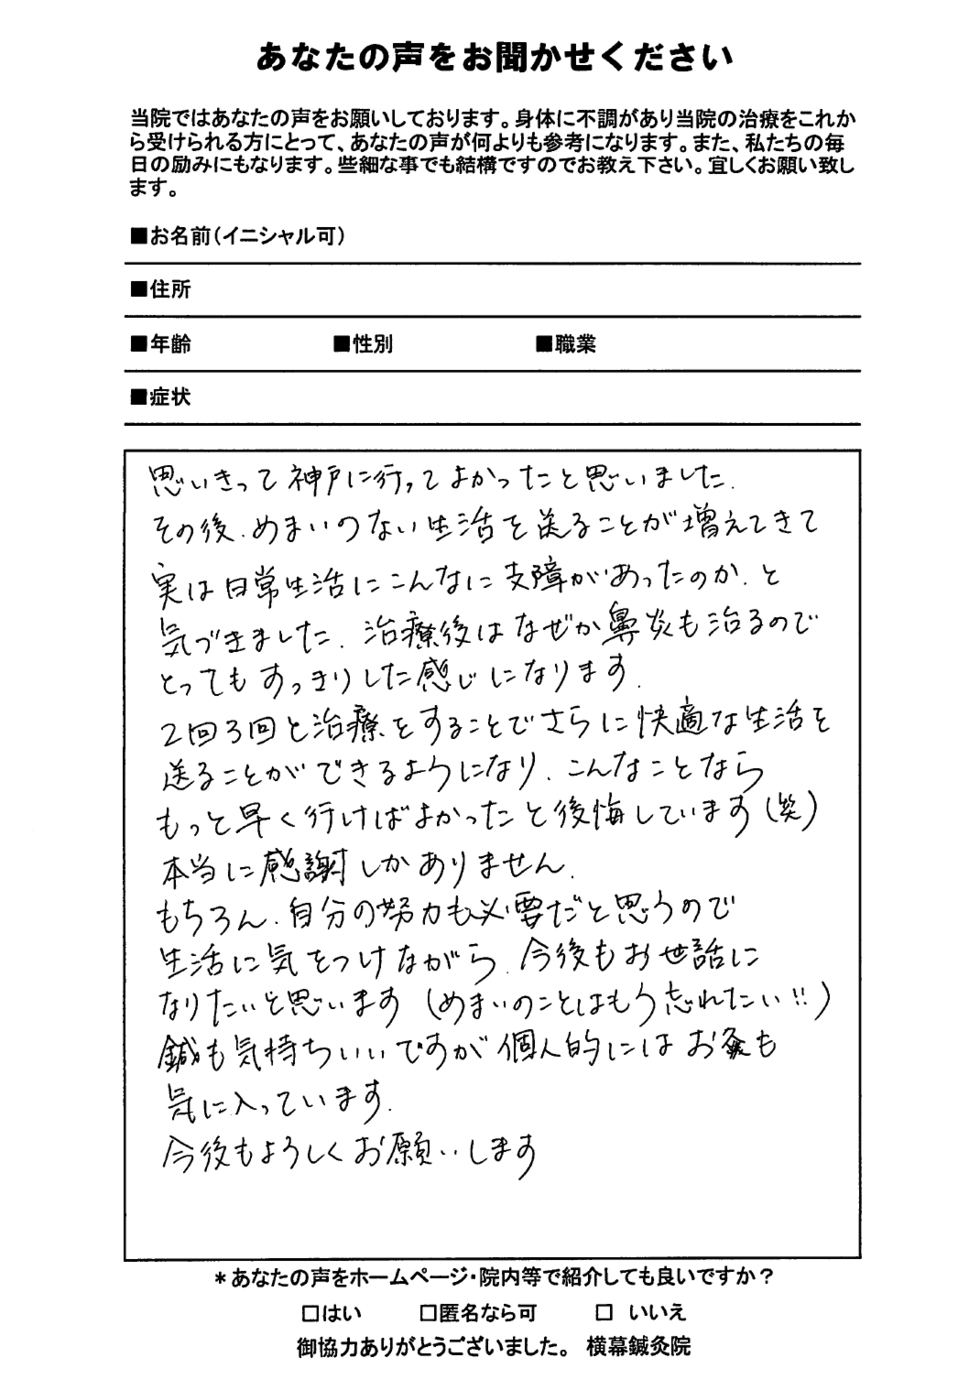 あなたの声をお聞かせください
当院ではあなたの声をお願いしております。身体に不調があり当院の治療をこれか
ら受けられる方にとって、あなたの声が何よりも参考になります。また、私たちの毎
日の励みにもなります。些細な事でも結構ですのでお教え下さい。宜しくお願い致し
ます。
■お名前(イニシャル可)
■住所
■年齢 ■性別 ■職業
■症状
思いきって神戸に行ってよかったと思いました.
その後.めまいのない生活を送ることが増えてきて
実は日常生活にこんなに支障があったのか.と
気づきました.治療後はなぜか鼻炎も治るので
とってもすっきりした感じになります.
2回3回と治療をすることでさらに快適な生活を
送ることができるようになり.こんなことなら
もっと早く行けばよかったと後悔しています(笑)
本当に感謝しかありません.
もちろん.自分の努力も必要だと思うので
生活に気をつけながら.今後もお世話に
なりたいと思います(めまいのことはもう忘れたい!!)
鍼も気持ちいいですが個人的にはお灸も
気に入っています.
今後もよろしくお願いします
*あなたの声をホームページ・院内等で紹介しても良いですか?
□はい □匿名なら可 □ いいえ
御協力ありがとうございました。 横幕鍼灸院